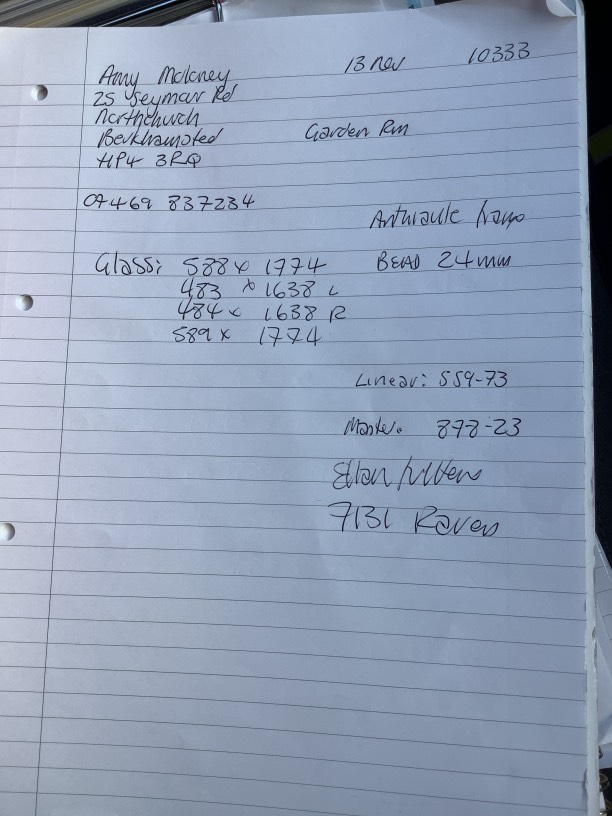 Amy Moloney 13 nov 10333
25 Seymour Rd
northchurch
Berkhamsted Garden Rm
HP4 3RQ
07469 837234
Glass: 588 x 1774 BEAD 24mm
483 x 1638 L
484 x 1638 R
589 x 1774
Linear: 559-73
Master. 878-23
7131 Raven